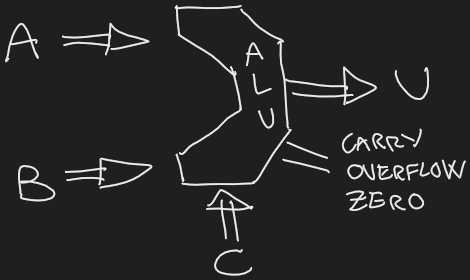 A
B
A
L
U
U
CARRY
OVERFLOW
ZERO
C